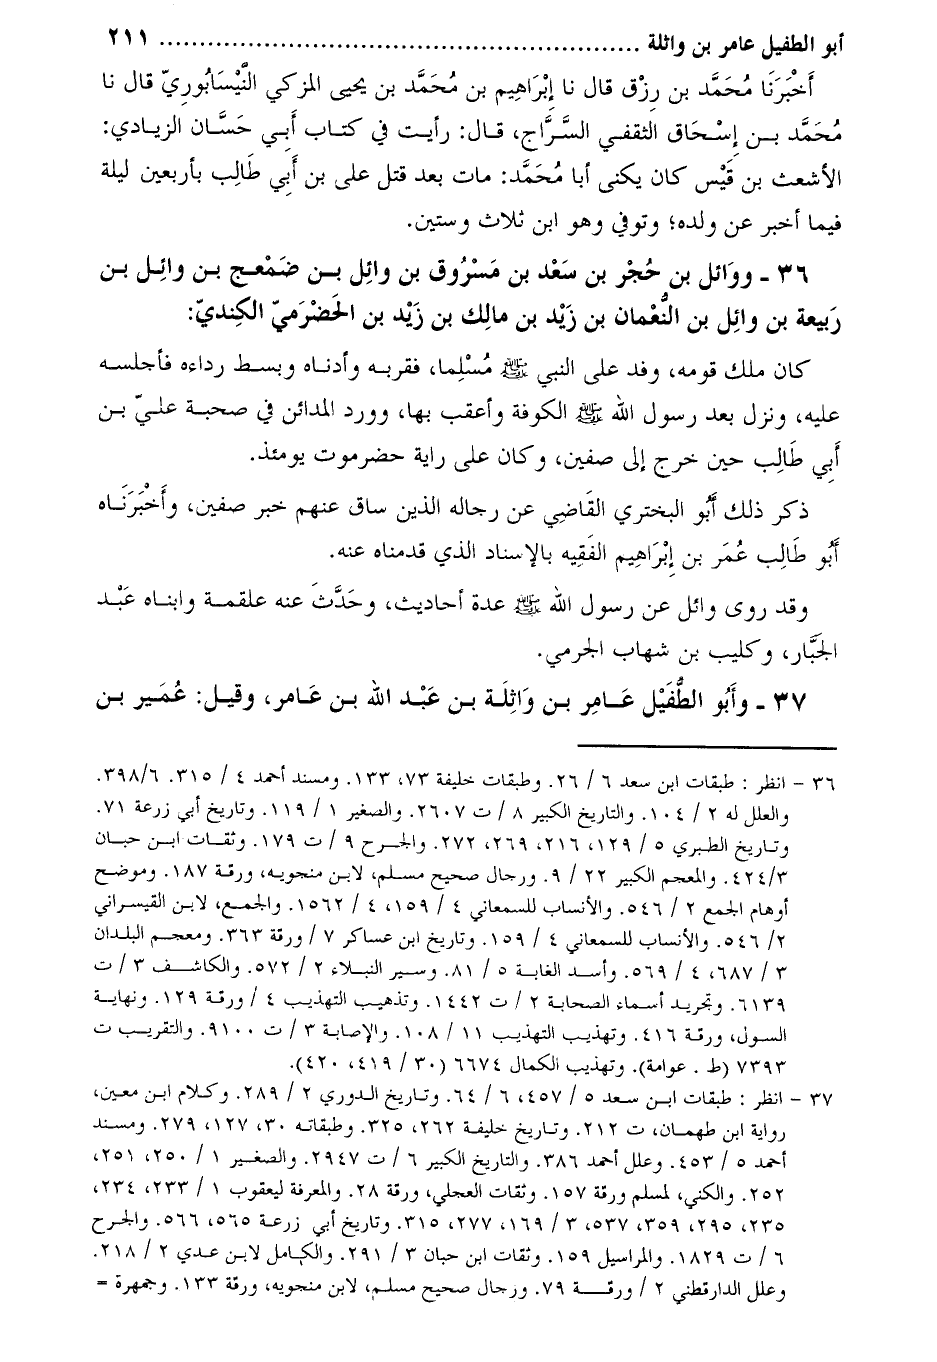 أبو الطفيل عامر بن واثلة ........................................................ ٢١١
أَخْبَرَنَا مُحَمَّد بن رِزْق قال نا إِبْرَاهِيم بن مُحَمَّد بن يحيى المزكي النَّيْسَابُوريّ قال نا
مُحَمَّد بن إِسْحَاق الثقفي السَّرَّاج، قال: رأيت في كتاب أَبِي حَسَّان الزيادي:
الأشعث بن قَيْس كان يكنى أبا مُحَمَّد: مات بعد قتل على بن أَبِي طَالِب بأربعين ليلة
فيما أخبر عن ولده؛ وتوفي وهو ابن ثلاث وستين.
٣٦ ـ ووَائل بن حُجْر بن سَعْد بن مَسْرُوق بن وائل بن ضَمْعج بن وائل بن
رَبيعة بن وائِل بن النُّعْمان بن زَيْد بن مالِك بن زَيْد بن الحَضْرَميّ الكِنديّ:
كان ملك قومه، وفد على النبي ﷺ مُسْلِما، فقربه وأدناه وبسط رداءه فأجلسه
عليه، ونزل بعد رسول الله ﷺ الكوفة وأعقب بها، وورد المدائن في صحبة عليّ بن
أَبِي طَالِب حين خرج إلى صفين، وكان على راية حضرموت يومئذ.
ذكر ذلك أَبُو البختري القَاضِي عن رجاله الذين ساق عنهم خبر صفين، وأَخْبَرَنَاه
أَبُو طَالِب عُمَر بن إِبْرَاهِيم الفَقِيه بالإسناد الذي قدمناه عنه.
وقد روى وائل عن رسول الله ﷺ عدة أحاديث، وحَدَّثَ عنه علقمة وابناه عَبْد
الجَبَّار، وكليب بن شهاب الجرمي.
٣٧ ـ وأَبُو الطُّفَيْل عَامِر بن وَاثِلَة بن عَبْد الله بن عَامر، وقيل: عُمَير بن
٣٦ - انظر : طبقات ابن سعد ٦ / ٢٦. وطبقات خليفة ٧٣، ١٣٣. ومسند أحمد ٤ / ٣١٥. ٣٩٨/٦.
والعلل له ٢ / ١٠٤. والتاريخ الكبير ٨ / ت ٢٦٠٧. والصغير ١ / ١١٩. وتاريخ أبي زرعة ٧١.
وتاريخ الطبري ٥ / ١٢٩، ٢١٦، ٢٦٩، ٢٧٢. والجرح ٩ / ت ١٧٩. وثقات ابن حبان
٤٢٤/٣. والمعجم الكبير ٢٢ / ٩. ورجال صحيح مسلم، لابن منجويه، ورقة ١٨٧. وموضح
أوهام الجمع ٢ / ٥٤٦. والأنساب للسمعاني ٤ / ١٥٩، ٤ / ١٥٦٢. والجمع، لابن القيسراني
٢/ ٥٤٦. والأنساب للسمعاني ٤ / ١٥٩. وتاريخ ابن عساكر ٧ / ورقة ٣٦٣. ومعجم البلدان
٣ / ٦٨٧، ٤ / ٥٦٩. وأسد الغابة ٥ / ٨١. وسير النبلاء ٢ / ٥٧٢. والكاشف ٣ / ت
٦١٣٩. وتجريد أسماء الصحابة ٢ / ت ١٤٤٢. وتذهيب التهذيب ٤ / ورقة ١٢٩. ونهاية
السول، ورقة ٤١٦. وتهذيب التهذيب ١١ / ١٠٨. والإصابة ٣ / ت ٩١٠٠. والتقريب ت
٧٣٩٣ (ط . عوامة). وتهذيب الكمال ٦٦٧٤ (٣٠ / ٤١٩، ٤٢٠).
٣٧ - انظر : طبقات ابن سعد ٥ / ٤٥٧، ٦ / ٦٤. وتاريخ الدوري ٢ / ٢٨٩. وكلام ابن معين،
رواية ابن طهمان، ت ٢١٢. وتاريخ خليفة ٢٦٢، ٣٢٥. وطبقاته ٣٠، ١٢٧، ٢٧٩. ومسند
أحمد ٥ / ٤٥٣. وعلل أحمد ٣٨٦. والتاريخ الكبير ٦ / ت ٢٩٤٧. والصغير ١ / ٢٥٠، ٢٥١،
٢٥٢. والكني، لمسلم ورقة ١٥٧. وثقات العجلي، ورقة ٢٨. والمعرفة ليعقوب ١ / ٢٣٣، ٢٣٤،
٢٣٥، ٢٩٥، ٣٥٩، ٥٣٧، ٣ / ١٦٩، ٢٧٧، ٣١٥. وتاريخ أبي زرعة ٥٦٥، ٥٦٦. والجرح
٦ / ت ١٨٢٩. والمراسيل ١٥٩. وثقات ابن حبان ٣ / ٢٩١. والكامل لابن عدي ٢ / ٢١٨.
وعلل الدارقطني ٢ / ورقة ٧٩. ورجال صحيح مسلم، لابن منجويه، ورقة ١٣٣. وجمهرة =